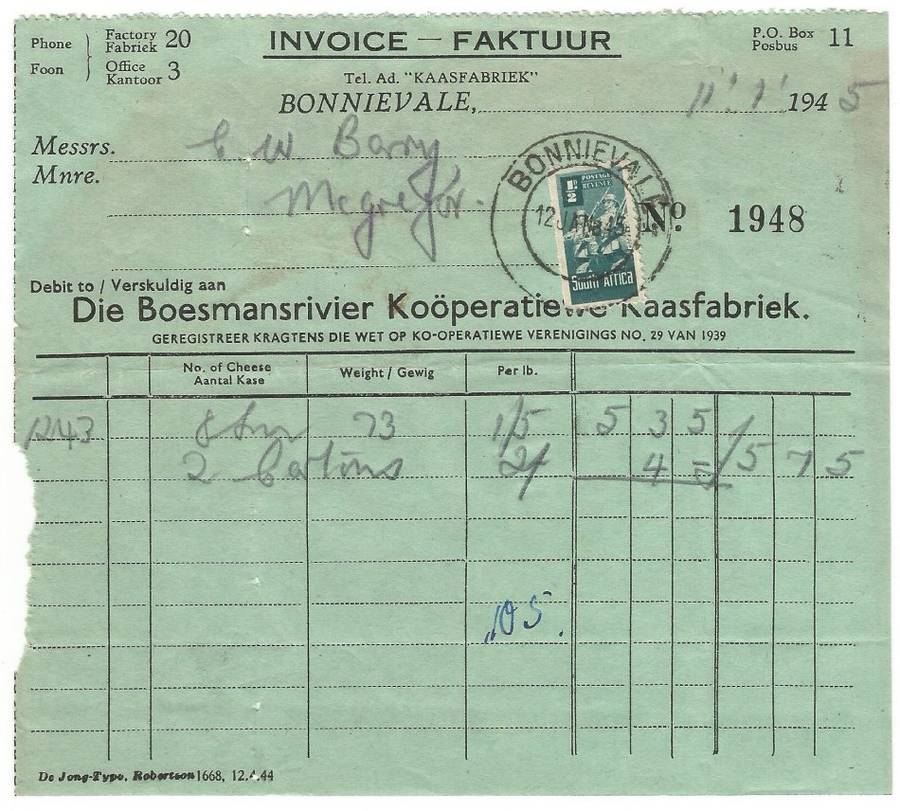 Phone Factory 20 INVOICE — FAKTUUR P.O. Box 11
Fabriek Posbus
Foon Office 3
Kantoor
Tel. Ad. "KAASFABRIEK"
BONNIEVALE, 11 . 1 . 1945
Messrs. C W. Barry
Mnre. Mcgregor.
BONNIEVALE
12 JAN 45
POSTAGE
REVENUE
½D
South Africa
No. 1948
Debit to / Verskuldig aan
Die Boesmansrivier Koöperatiewe Kaasfabriek.
GEREGISTREER KRAGTENS DIE WET OP KO-OPERATIEWE VERENIGINGS NO. 29 VAN 1939
No. of Cheese Weight / Gewig Per lb.
Aantal Kase
1243 8 73 1/5 5 3 5
2 Cartons 2/ 4 - 5 7 5
105.
De Jong-Typo, Robertson 1668, 12.4.44